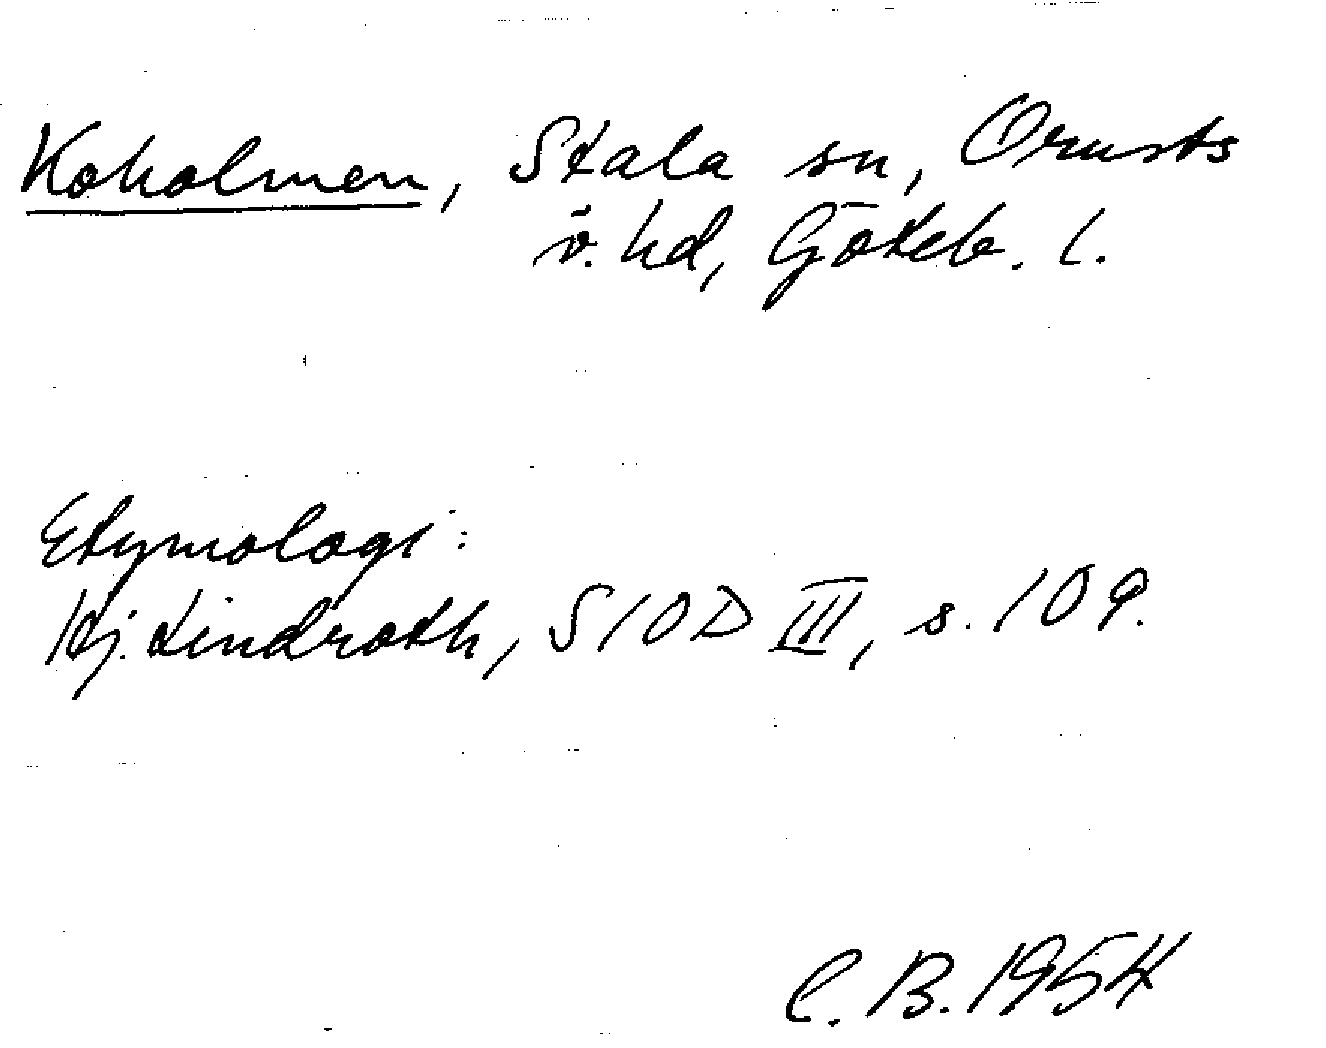 Koholmen, Stala sn, Orusts
v. hd, Göteb. l.
Etymologi:
Hj. Lindroth, SIOD III, s. 109.
C. B. 1954